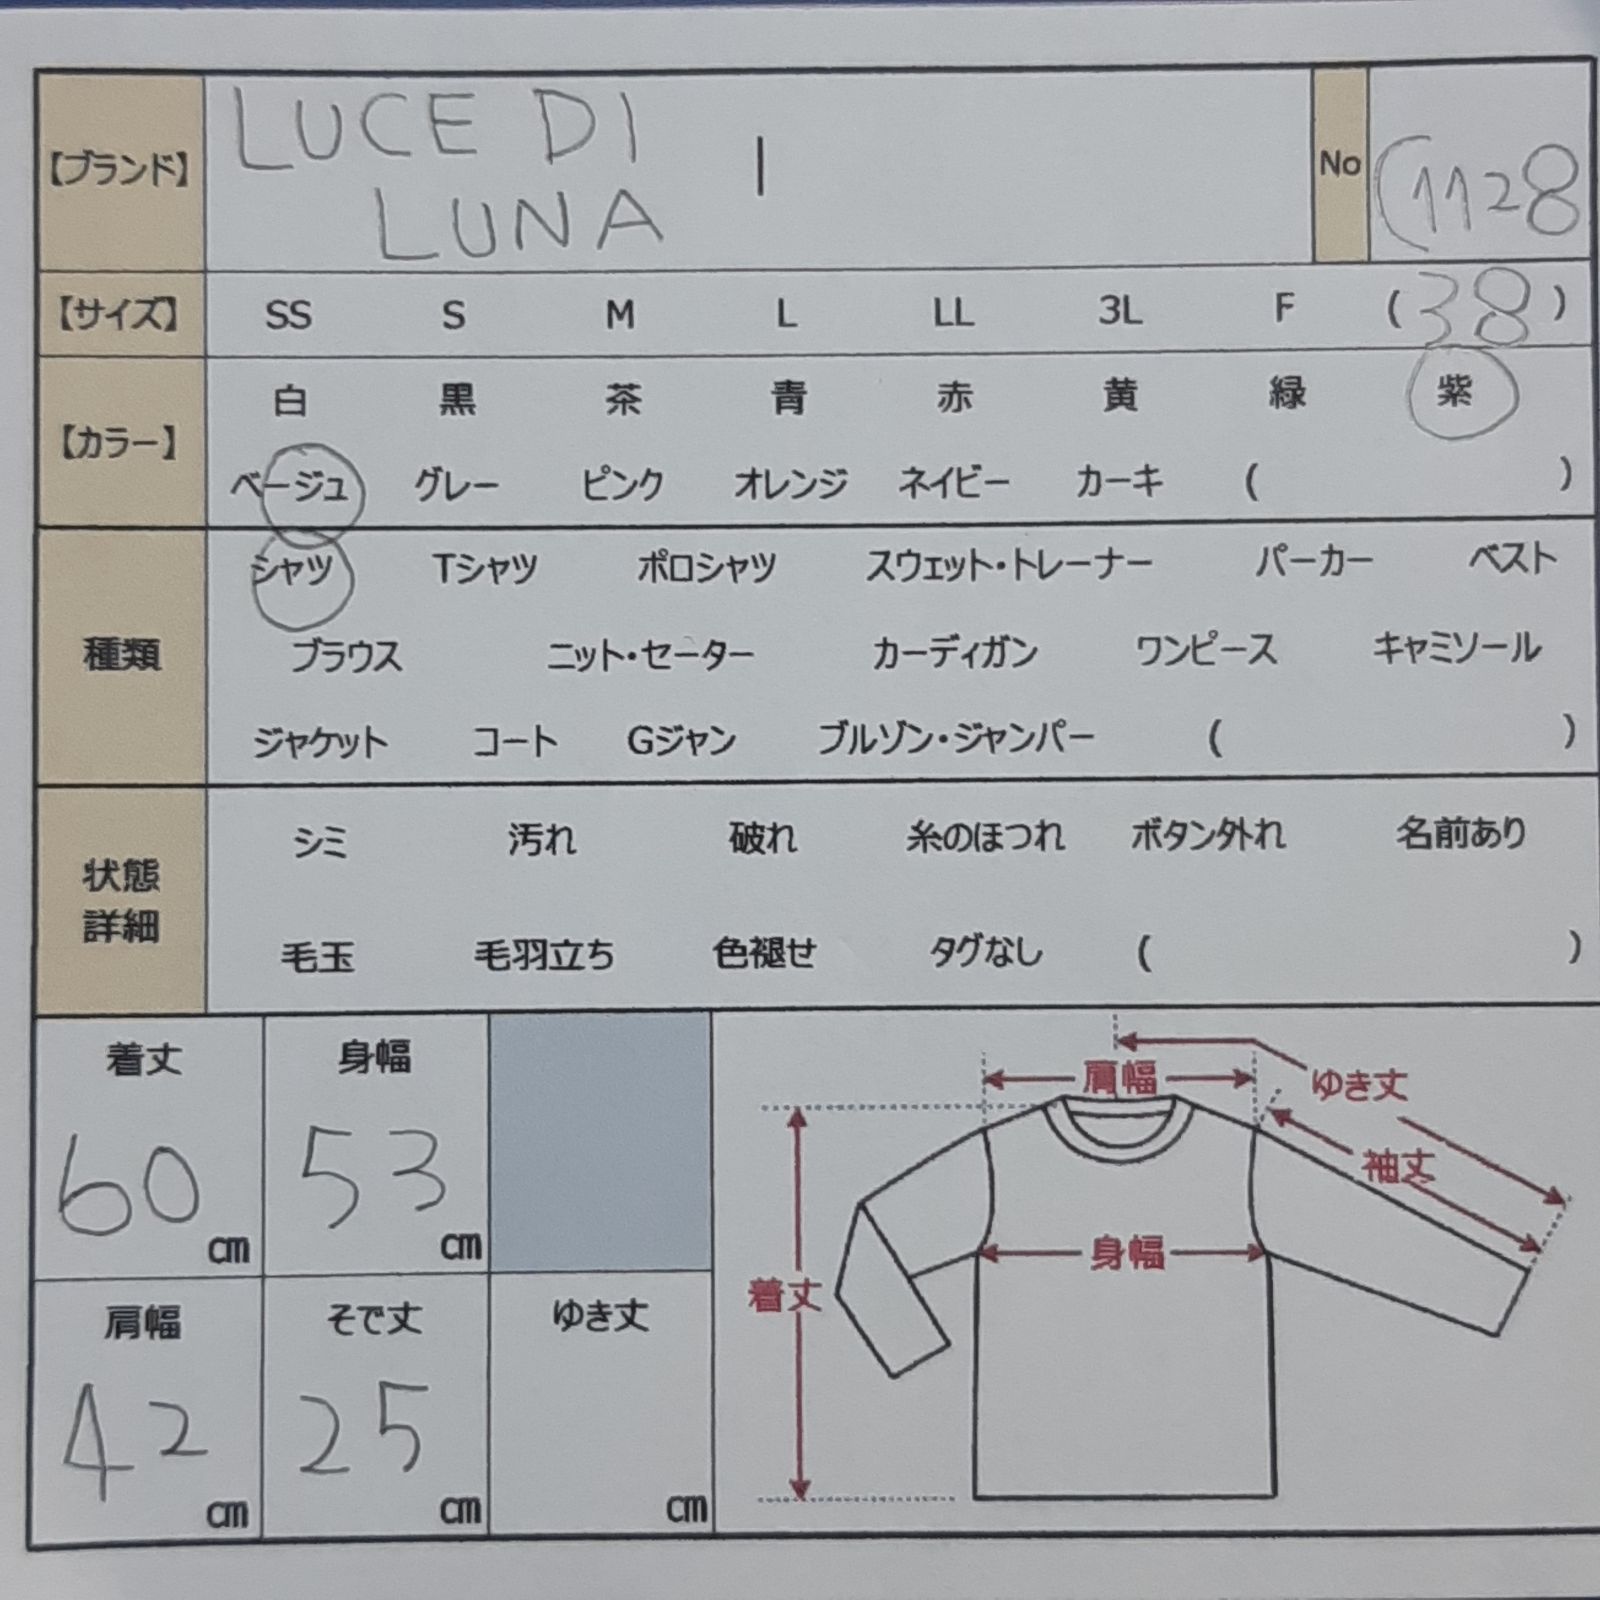 【ブランド】 LUCE DI
LUNA
No (1128
【サイズ】 SS S M L LL 3L F (38)
【カラー】 白 黒 茶 青 赤 黄 緑 紫
ベージュ グレー ピンク オレンジ ネイビー カーキ ( )
種類 シャツ Tシャツ ポロシャツ スウェット・トレーナー パーカー ベスト
ブラウス ニット・セーター カーディガン ワンピース キャミソール
ジャケット コート Gジャン ブルゾン・ジャンパー ( )
状態
詳細
シミ 汚れ 破れ 糸のほつれ ボタン外れ 名前あり
毛玉 毛羽立ち 色褪せ タグなし ( )
着丈 身幅
60 cm 53 cm
肩幅 そで丈 ゆき丈
42 cm 25 cm cm
肩幅
ゆき丈
袖丈
身幅
着丈